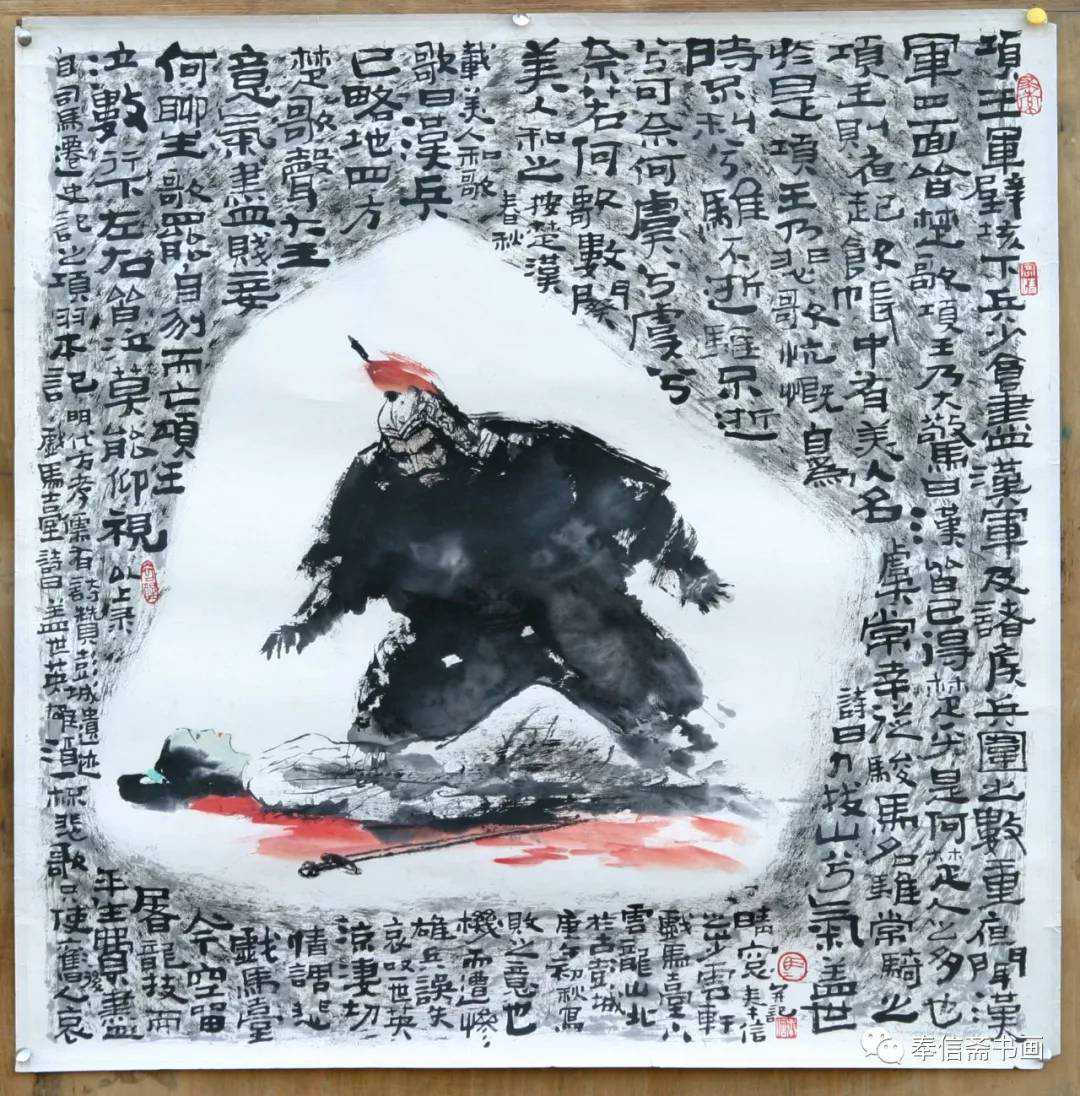 項王軍壁垓下兵少食盡漢軍及諸侯兵圍之數重夜聞漢
軍四面皆楚歌項王乃大驚曰漢皆已得楚乎是何楚人之多也
項王則夜起飲帳中有美人名虞常幸從駿馬名騅常騎之
於是項王乃悲歌忼慨自為詩曰力拔山兮氣蓋世
時不利兮騅不逝騅不逝
兮可奈何虞兮虞兮
奈若何歌數闋
美人和之按楚漢
春秋
載美人和歌
歌曰漢兵
已略地四方
楚歌聲大王
意氣盡賤妾
何聊生歌罷自刎而亡項王
泣數行下左右皆泣莫能仰視以上錄
自司馬遷史記之項羽本記明代方孝儒有詩贊彭城遺迹
戲馬臺詩曰蓋世英雄酒一杯悲歌只使舊人哀
平生學盡
屠龍技而
今空留
戲馬臺
情調悲
涼淒切
哀嘆世英
雄兵誤失
機而遭慘
敗之意也
庚子初秋寫
於古彭城
雲龍山北
戲馬臺下
步雲軒
晴窗袁奉信
并記
奉信斋书画